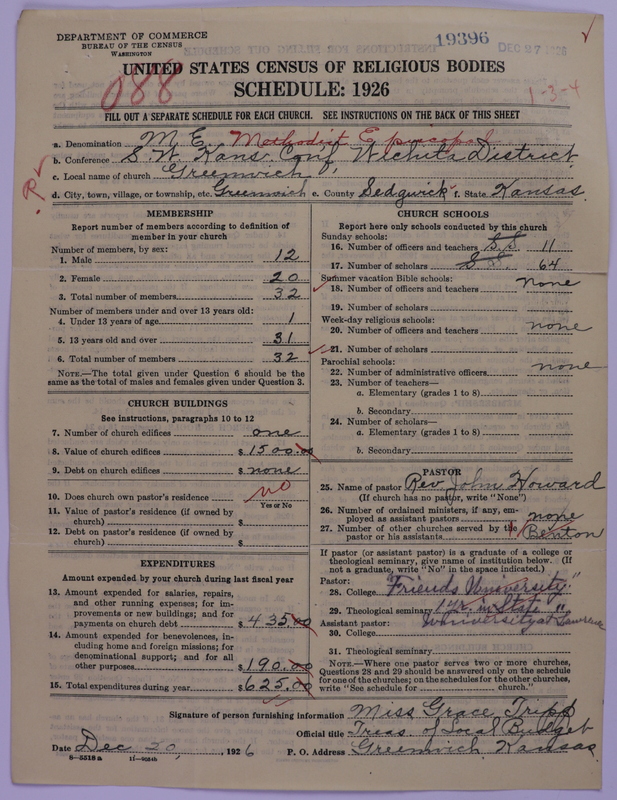 DEPARTMENT OF COMMERCE
BUREAU OF THE CENSUS
WASHINGTON
19396
DEC 27 1926
UNITED STATES CENSUS OF RELIGIOUS BODIES
SCHEDULE: 1926
088
1-3-4
FILL OUT A SEPARATE SCHEDULE FOR EACH CHURCH. SEE INSTRUCTIONS ON THE BACK OF THIS SHEET
a. Denomination M. E. Methodist Episcopal
b. Conference S. W. Kans. Conf. Wichita District
c. Local name of church Greenwich
R
d. City, town, village, or township, etc. Greenwich e. County Sedgwick f. State Kansas.
MEMBERSHIP
Report number of members according to definition of member in your church
Number of members, by sex:
1. Male 12
2. Female 20
3. Total number of members 32
Number of members under and over 13 years old:
4. Under 13 years of age 1
5. 13 years old and over 31
6. Total number of members 32
NOTE.—The total given under Question 6 should be the same as the total of males and females given under Question 3.
CHURCH BUILDINGS
See instructions, paragraphs 10 to 12
7. Number of church edifices one
8. Value of church edifices $1500.00
9. Debt on church edifices $none
10. Does church own pastor's residence no
Yes or No
11. Value of pastor's residence (if owned by church) $
12. Debt on pastor's residence (if owned by church) $
EXPENDITURES
Amount expended by your church during last fiscal year
13. Amount expended for salaries, repairs, and other running expenses; for improvements or new buildings; and for payments on church debt $435.00
14. Amount expended for benevolences, including home and foreign missions; for denominational support; and for all other purposes $190.00
15. Total expenditures during year $625.00
CHURCH SCHOOLS
Report here only schools conducted by this church
Sunday schools:
16. Number of officers and teachers S.S. 11
17. Number of scholars S.S. 64
Summer vacation Bible schools:
18. Number of officers and teachers none
19. Number of scholars
Week-day religious schools:
20. Number of officers and teachers none
21. Number of scholars
Parochial schools:
22. Number of administrative officers none
23. Number of teachers—
a. Elementary (grades 1 to 8)
b. Secondary
24. Number of scholars—
a. Elementary (grades 1 to 8)
b. Secondary
PASTOR
25. Name of pastor Rev. John Howard
(If church has no pastor, write "None")
26. Number of ordained ministers, if any, employed as assistant pastors none
27. Number of other churches served by the pastor or his assistants 1 Benton
If pastor (or assistant pastor) is a graduate of a college or theological seminary, give name of institution below. (If not a graduate, write "No" in the space indicated.)
Pastor:
28. College Friends University"
29. Theological seminary 1 yr. in State "
Assistant pastor: University at Lawrence
30. College
31. Theological seminary
NOTE.—Where one pastor serves two or more churches, Questions 28 and 29 should be answered only on the schedule for one of the churches; on the schedules for the other churches, write "See schedule for church."
Signature of person furnishing information Miss Grace Tripp
Official title Treas of Local Budget
Date Dec 20, 1926 P. O. Address Greenwich Kansas
8-5518a 11-9024b